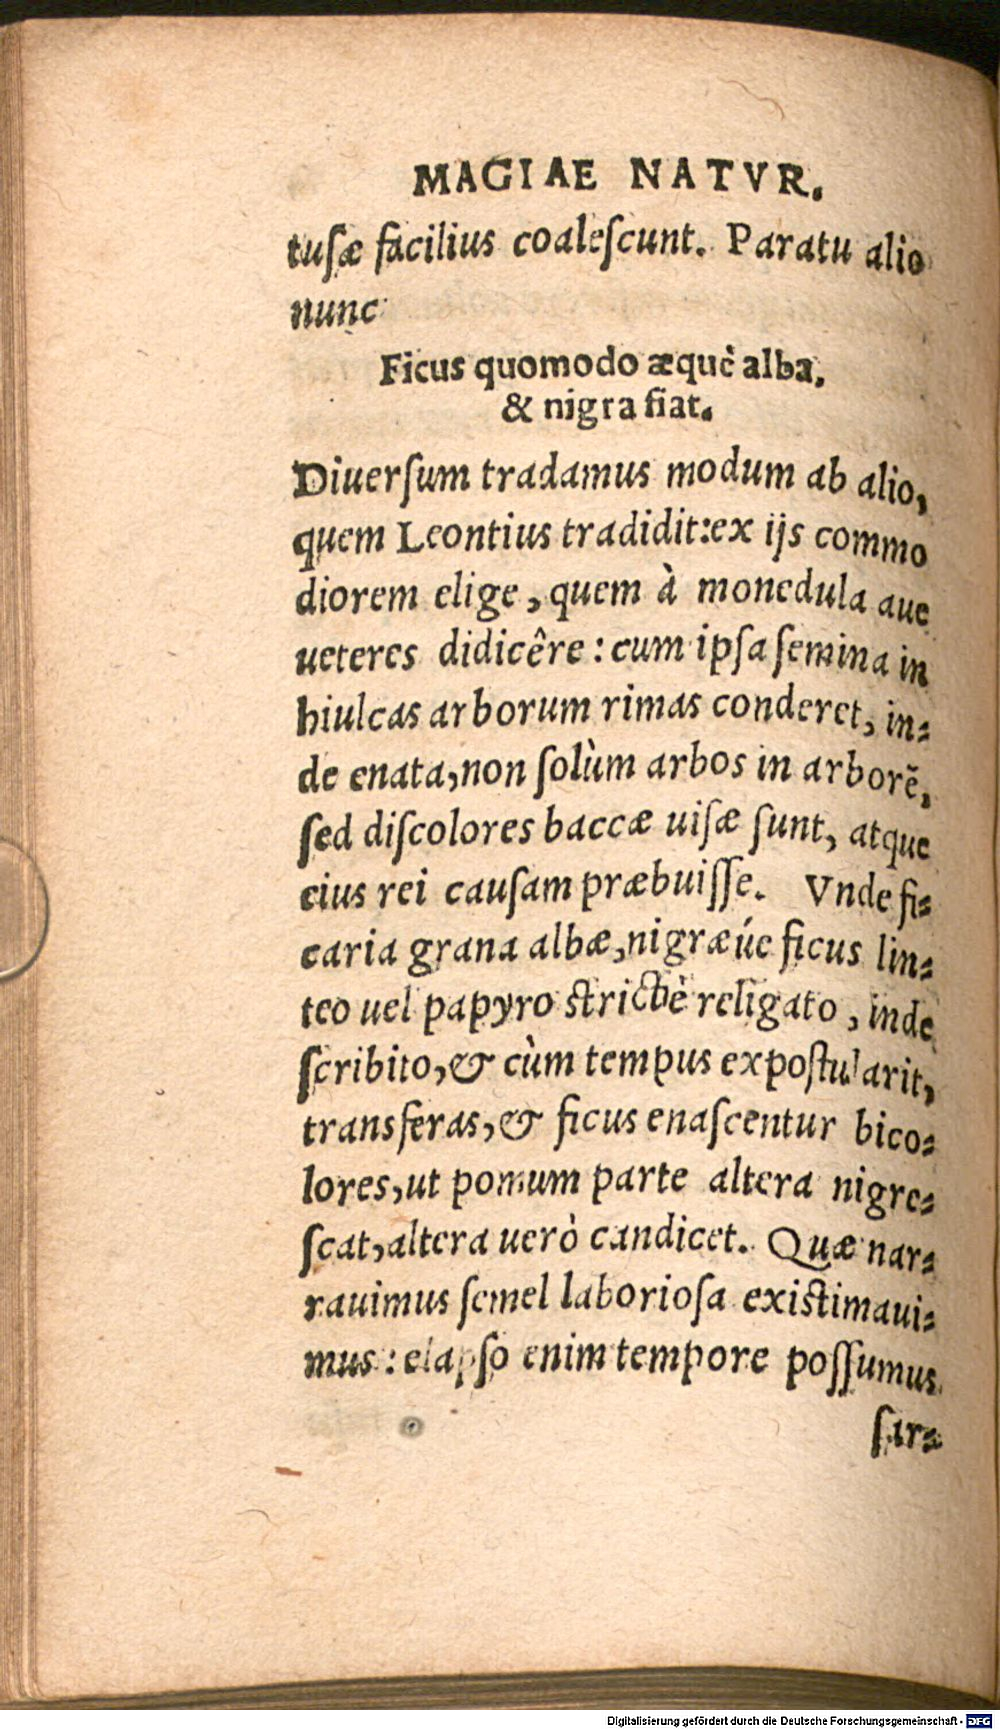 MAGIAE NATVR.
tusæ facilius coalescunt. Paratu alio
nunc
Ficus quomodo æquè alba,
& nigra fiat.
Diuersum tradamus modum ab alio,
quem Leontius tradidit:ex ijs commo
diorem elige, quem à monedula aue
ueteres didicêre: cum ipsa semina in
hiulcas arborum rimas conderet, in-
de enata, non solùm arbos in arborẽ,
sed discolores baccæ uisæ sunt, atque
eius rei causam præbuisse. Vnde fi-
caria grana albæ, nigræúe ficus lin-
teo uel papyro strictè religato, inde
scribito, & cùm tempus expostularit,
transferas, & ficus enascentur bico-
lores, ut pomum parte altera nigre-
scat, altera uerò candicet. Quæ nar-
rauimus semel laboriosa existimaui-
mus: elapso enim tempore possumus
sar-
Digitalisierung gefördert durch die Deutsche Forschungsgemeinschaft - DFG